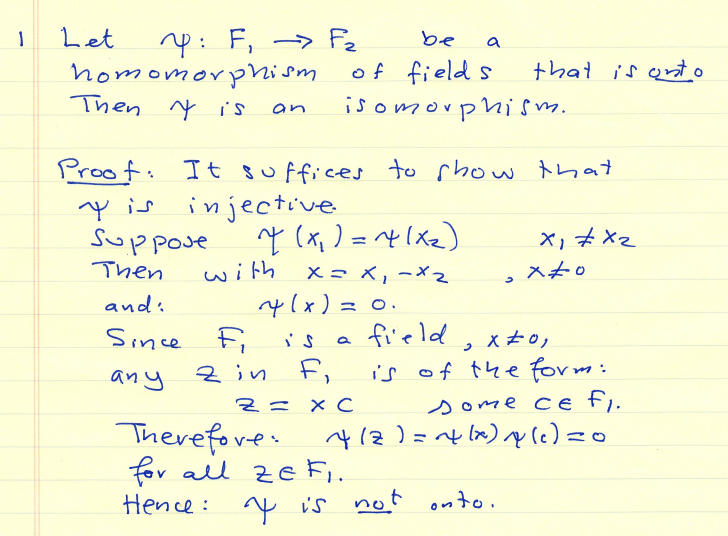 1 Let ψ: F₁ → F₂ be a
homomorphism of fields that is onto
Then ψ is an isomorphism.
Proof: It suffices to show that
ψ is injective.
Suppose ψ(x₁) = ψ(x₂) x₁ ≠ x₂
Then with x = x₁ - x₂ , x ≠ 0
and: ψ(x) = 0.
Since F₁ is a field, x ≠ 0,
any z in F₁ is of the form:
z = xc some c ∈ F₁.
Therefore: ψ(z) = ψ(x) ψ(c) = 0
for all z ∈ F₁.
Hence: ψ is not onto.